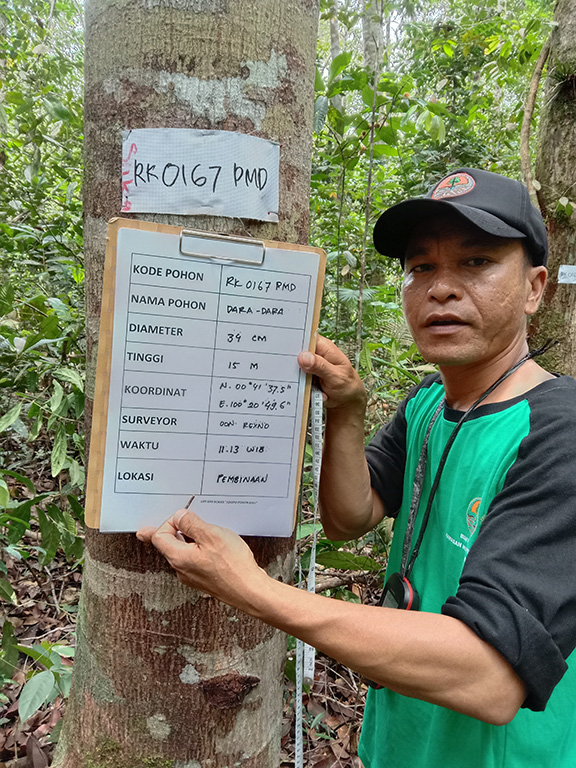 RK0167 PMD
KODE POHON RK 0167 PMD
NAMA POHON DARA-DARA
DIAMETER 34 CM
TINGGI 15 M
KOORDINAT N. 00° 41' 37.5"
E. 100° 20' 49.6"
SURVEYOR DON. REYNO
WAKTU 11.13 WIB
LOKASI PEMBINAAN